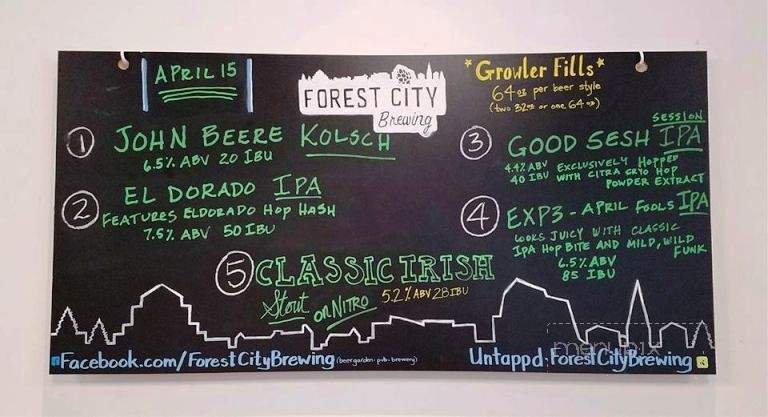 APRIL 15
FOREST CITY
Brewing
*Growler Fills*
64oz per beer style
(two 32oz or one 64oz)
1 JOHN BEERE KOLSCH
6.5% ABV 20 IBU
2 EL DORADO IPA
FEATURES ELDORADO HOP HASH
7.5% ABV 50 IBU
SESSION
3 GOOD SESH IPA
4.4% ABV EXCLUSIVELY HOPPED
40 IBU WITH CITRA CRYO HOP
POWDER EXTRACT
4 EXP3 - APRIL FOOLS IPA
LOOKS JUICY WITH CLASSIC
IPA HOP BITE AND MILD, WILD
FUNK
6.5% ABV
85 IBU
5 CLASSIC IRISH
Stout ON NITRO 5.2% ABV 28 IBU
Facebook.com/ForestCityBrewing (beergarden·pub·brewery)
Untappd: ForestCityBrewing
menupix